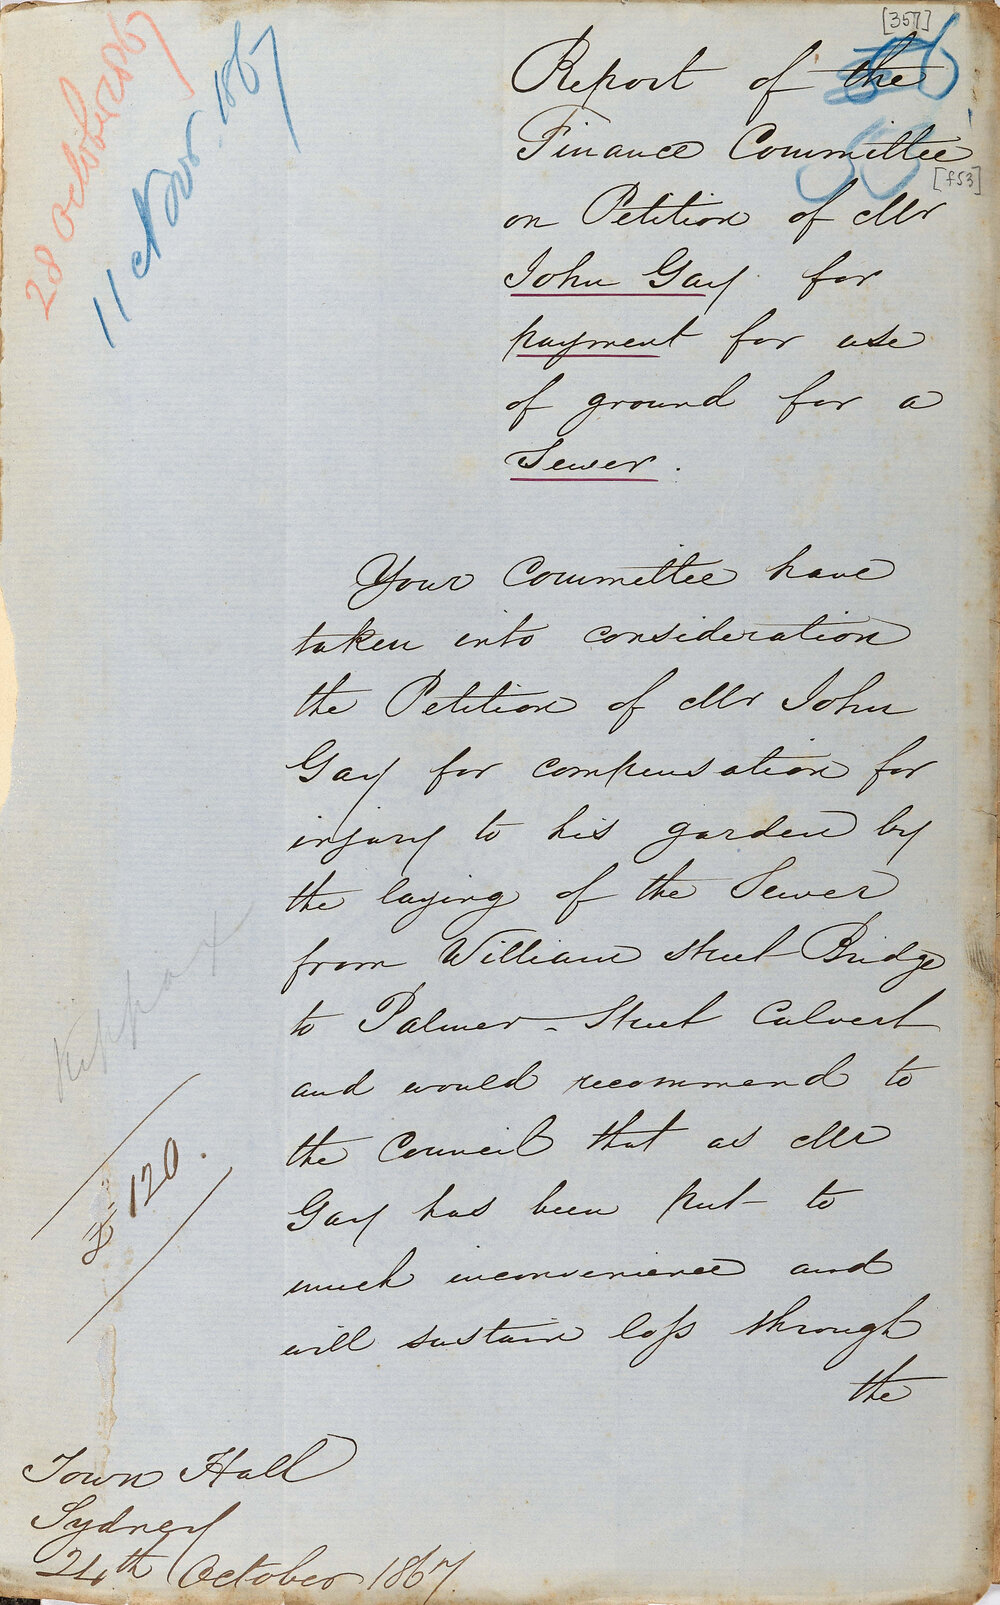 [357]
28 October 1867
11 Novr. 1867
Report of the
Finance Committee
[f53]
on Petition of Mr
John Gay for
payment for use
of ground for a
Sewer.
Your Committee have
taken into consideration
the Petition of Mr John
Gay for compensation for
injury to his garden by
the laying of the Sewer
from William Street Bridge
to Palmer - Street Culvert
and would recommend to
the Council that as Mr
Gay has been put to
much inconvenience and
will sustain loss through
the
Kippax
£120.
Town Hall
Sydney
24th October 1867.